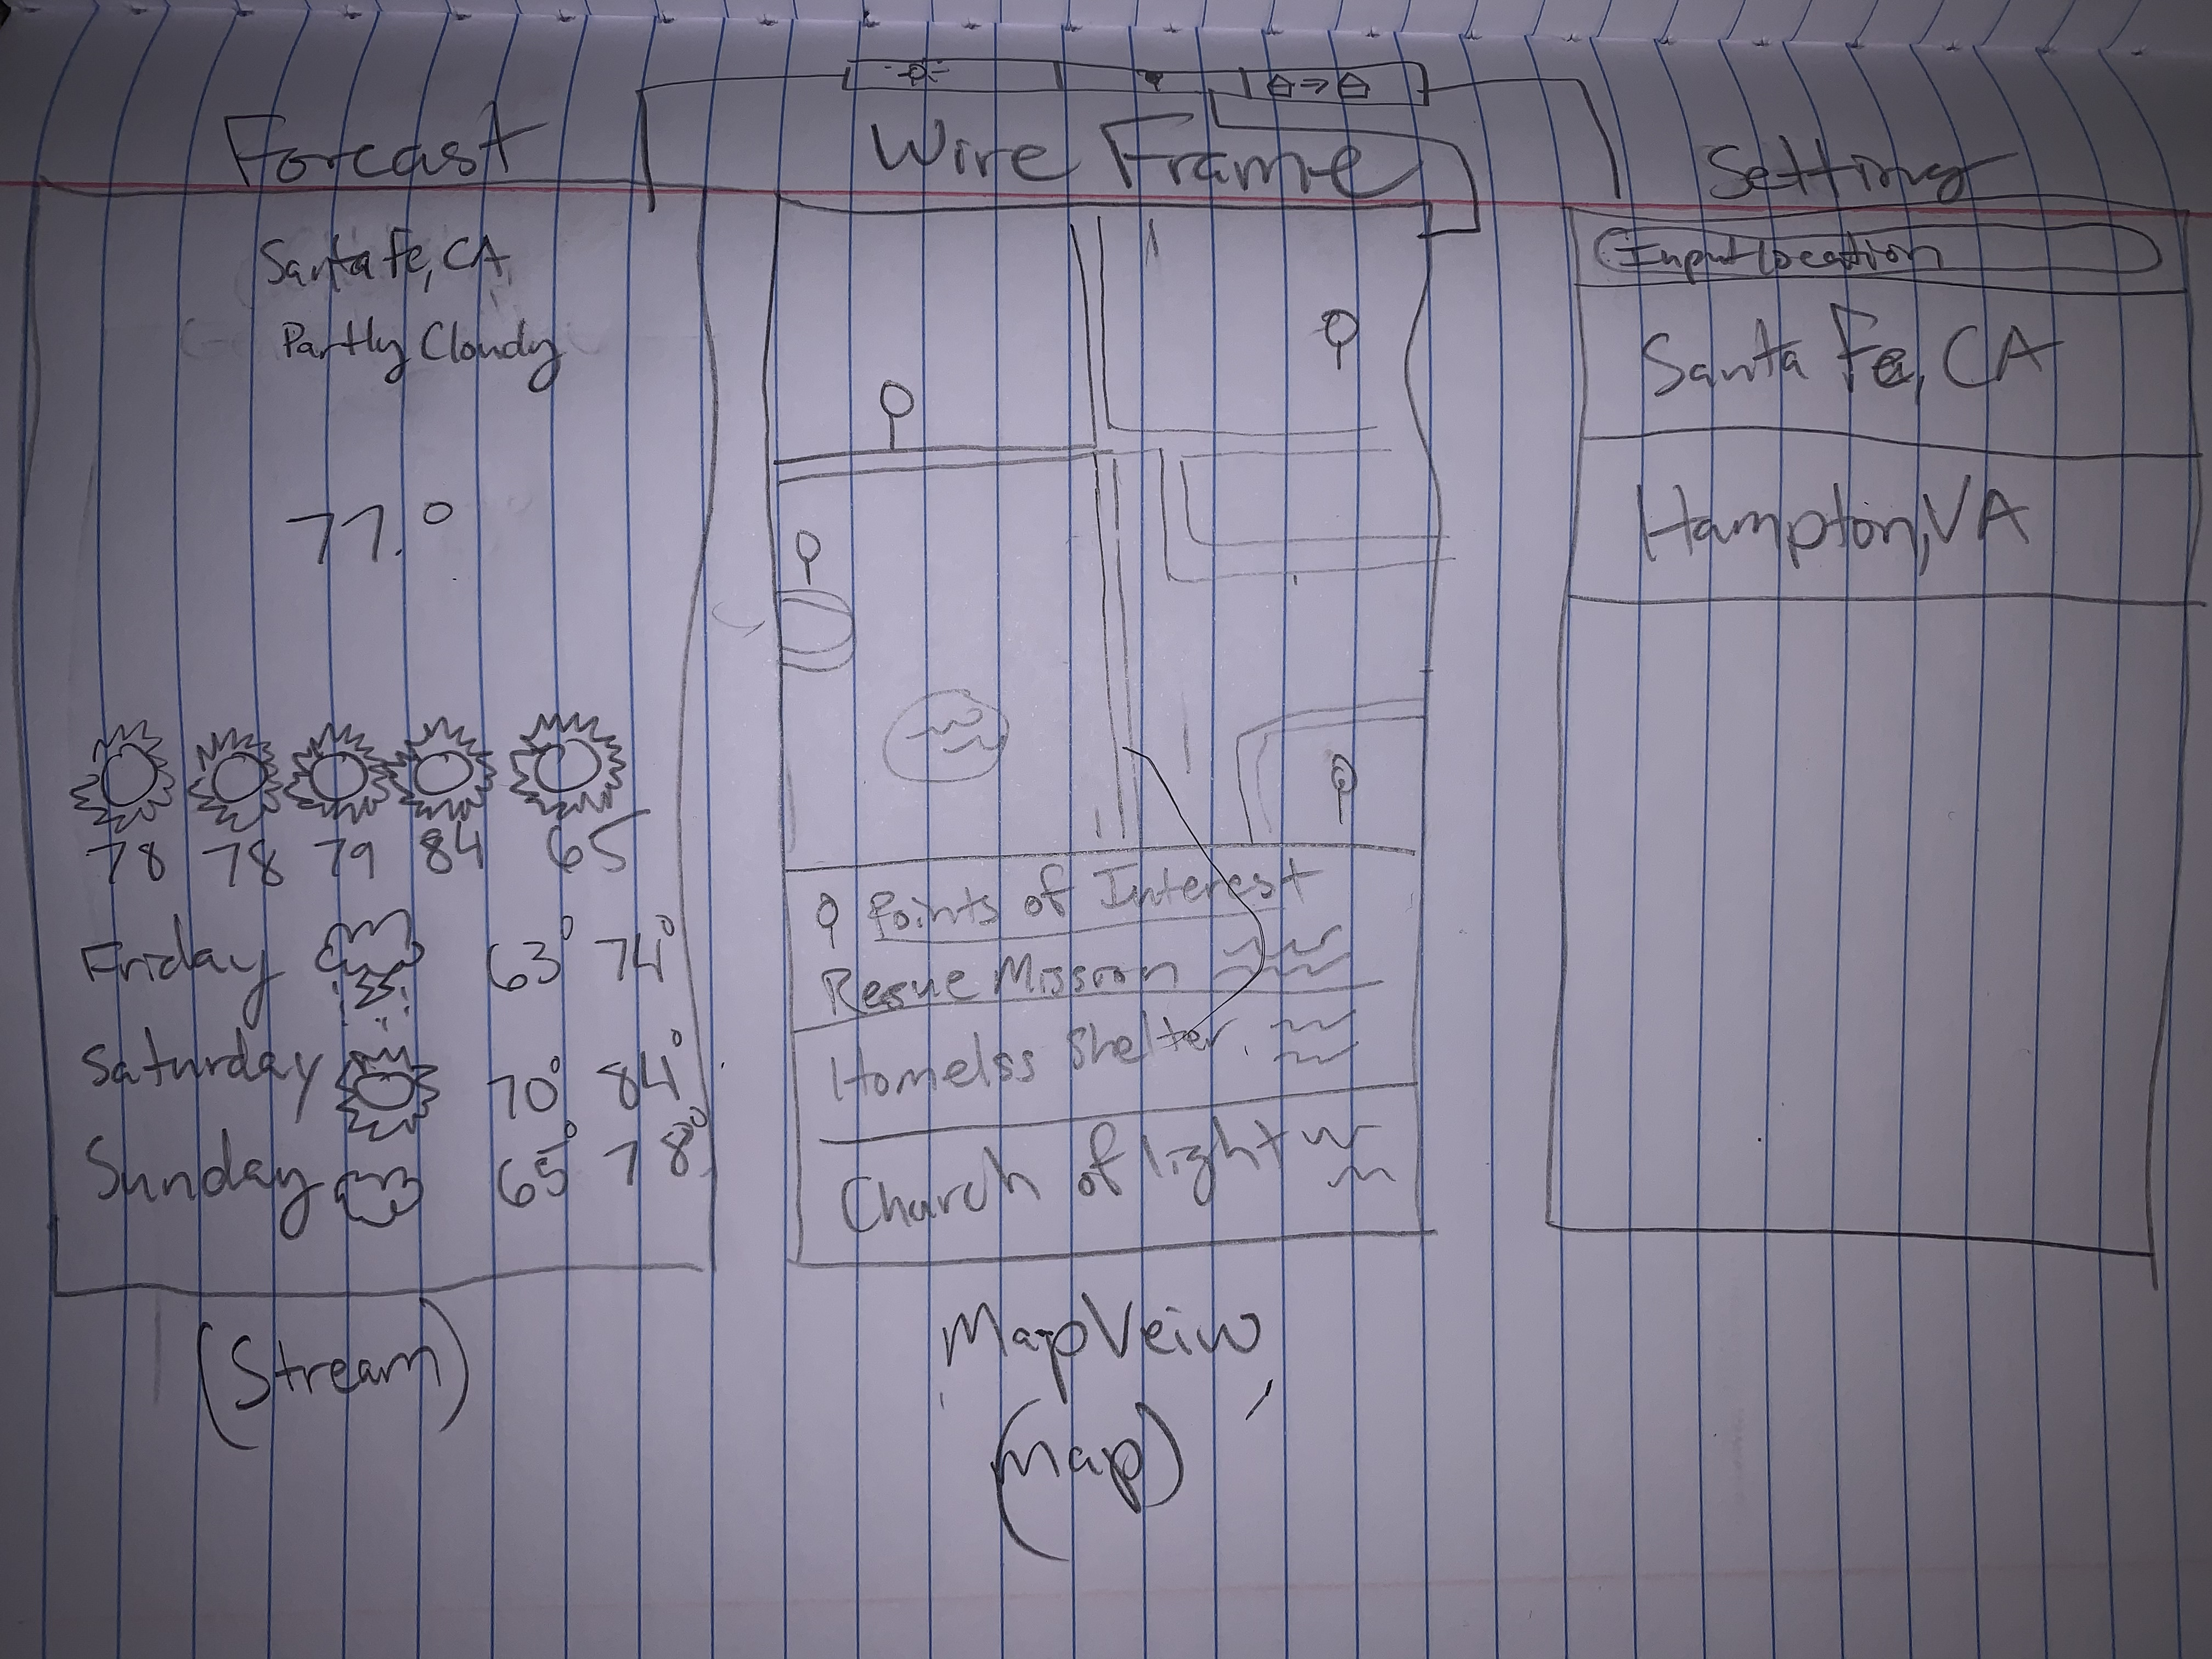 Wire Frame
Forcast
Santa Fe, CA
Partly Cloudy
77.0
78 78 79 84 65
Friday 63° 74°
Saturday 70° 84°
Sunday 65° 78°
(Stream)
Points of Interest
Resue Mission
Homelss Shelter
Church of light
Map Veiw
(Map)
Setting
Input location
Santa Fe, CA
Hampton, VA